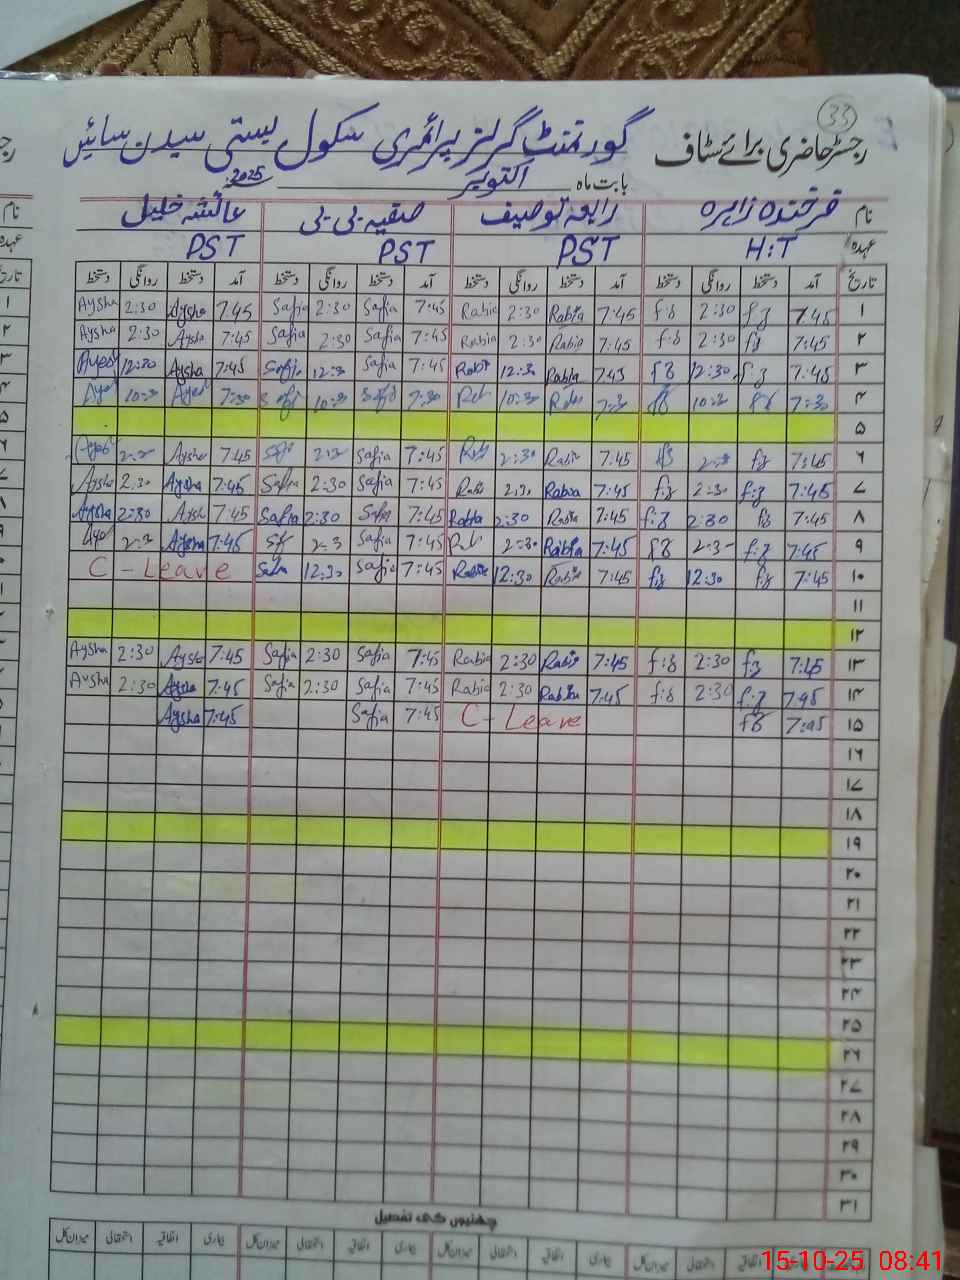 33
رجسٹر حاضری برائے سٹاف گورنمنٹ گرلز پرائمری سکول بستی سیدن سائیں
بابت ماہ اکتوبر 2025
نام فرخندہ زاہرہ رابعہ توصیف صفیہ بی بی عائشہ خلیل
عہدہ H:T PST PST PST
تاریخ آمد دستخط روانگی دستخط آمد دستخط روانگی دستخط آمد دستخط روانگی دستخط آمد دستخط روانگی دستخط
۱ 7:45 f:z 2:30 f:z 7:45 Rabia 2:30 Rabia 7:45 Safia 2:30 Safia 7:45 Aysha 2:30 Aysha
۲ 7:45 f:z 2:30 f:z 7:45 Rabia 2:30 Rabia 7:45 Safia 2:30 Safia 7:45 Aysha 2:30 Aysha
۳ 7:45 f:z 12:30 fz 7:45 Rabia 12:30 7:45 Safia 12:30 7:45 Aysha 12:30
۴ 7:30 10:30 7:30 10:30 7:30 10:30 7:30 10:30
۵
۶ 7:45 f:z 7:45 Rabia 2:30 7:45 Safia 7:45 Aysha
۷ 7:45 f:z 2:30 f:z 7:45 Rabia 2:30 Rabi 7:45 Safia 2:30 Safia 7:45 Aysha 2:30 Aysha
۸ 7:45 fz 2:30 f:z 7:45 Rabia 2:30 Rabia 7:45 Safia 2:30 Safia 7:45 Aysh 2:30 Aysha
۹ 7:45 f:z 7:45 Rabia 2:30 7:45 Safia 7:45 Aysha
۱۰ 7:45 fz 12:30 f:z 7:45 Rabia 12:30 Rabia 7:45 Safia 12:30 C - Leave
۱۱
۱۲
۱۳ 7:45 f:z 2:30 f:z 7:45 Rabia 2:30 Rabia 7:45 Safia 2:30 Safia 7:45 Aysha 2:30 Aysha
۱۴ 7:45 f:z 2:30 f:z 7:45 Rabia 2:30 Rabia 7:45 Safia 2:30 Safia 7:45 Aysha 2:30 Aysha
۱۵ 7:45 fz C - Leave 7:45 Safia 7:45 Aysha
۱۶
۱۷
۱۸
۱۹
۲۰
۲۱
۲۲
۲۳
۲۴
۲۵
۲۶
۲۷
۲۸
۲۹
۳۰
۳۱
چھٹیوں کی تفصیل
بیماری اتفاقیہ استحقاقی میزان کل بیماری اتفاقیہ استحقاقی میزان کل بیماری اتفاقیہ استحقاقی میزان کل
15-10-25 08:41